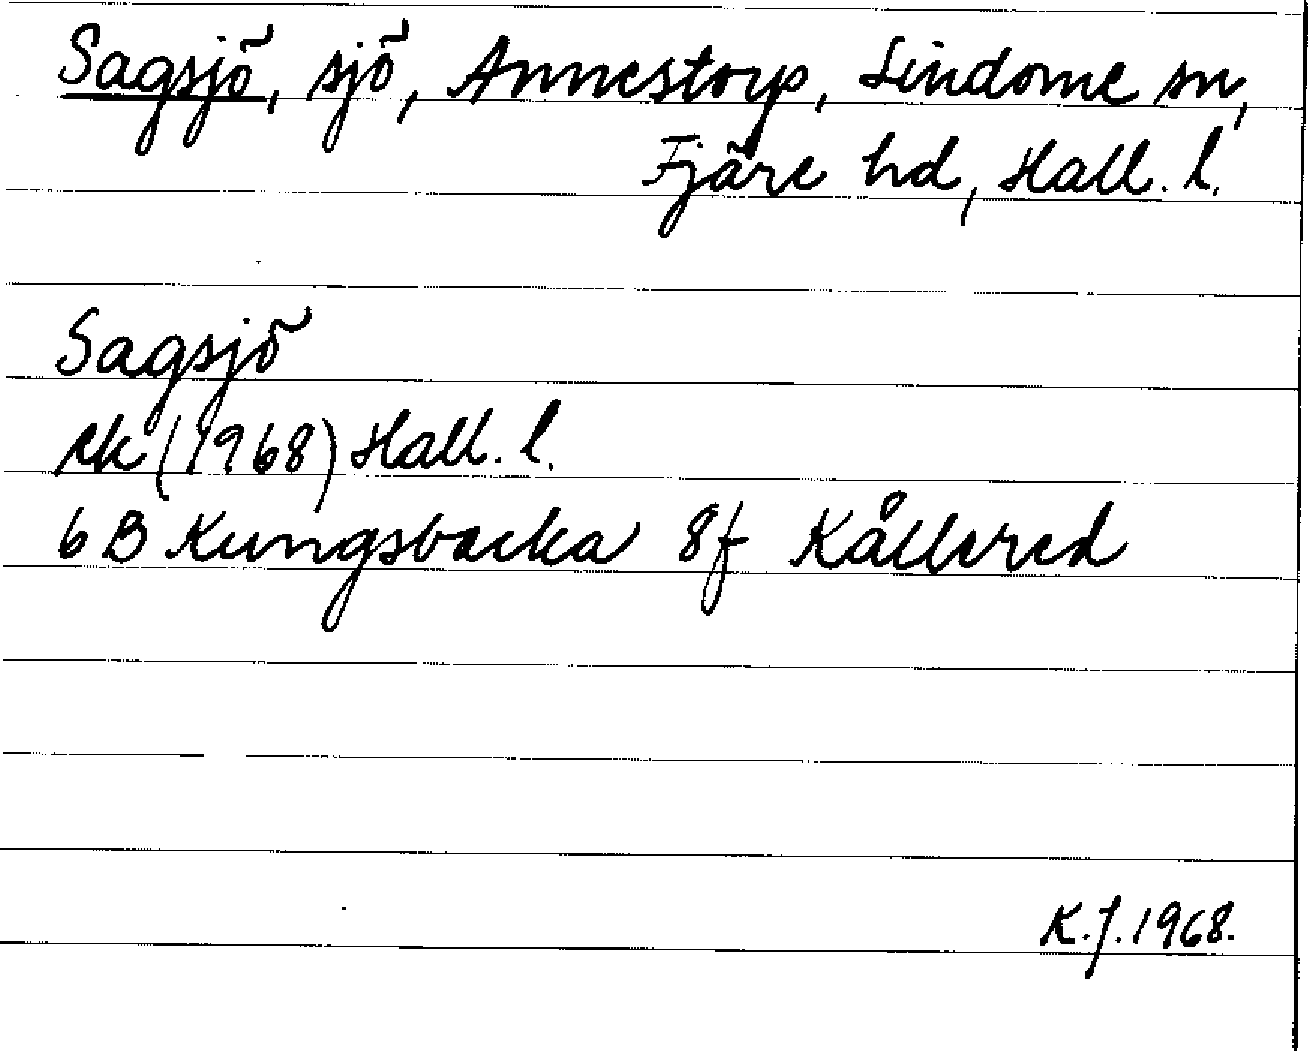 Sagsjö, sjö, Annestorp, Lindome sn,
Fjäre hd, Hall. l.
Sagsjö
rk (1968) Hall. l.
6B Kungsbacka 8f Kållered
K.J. 1968.